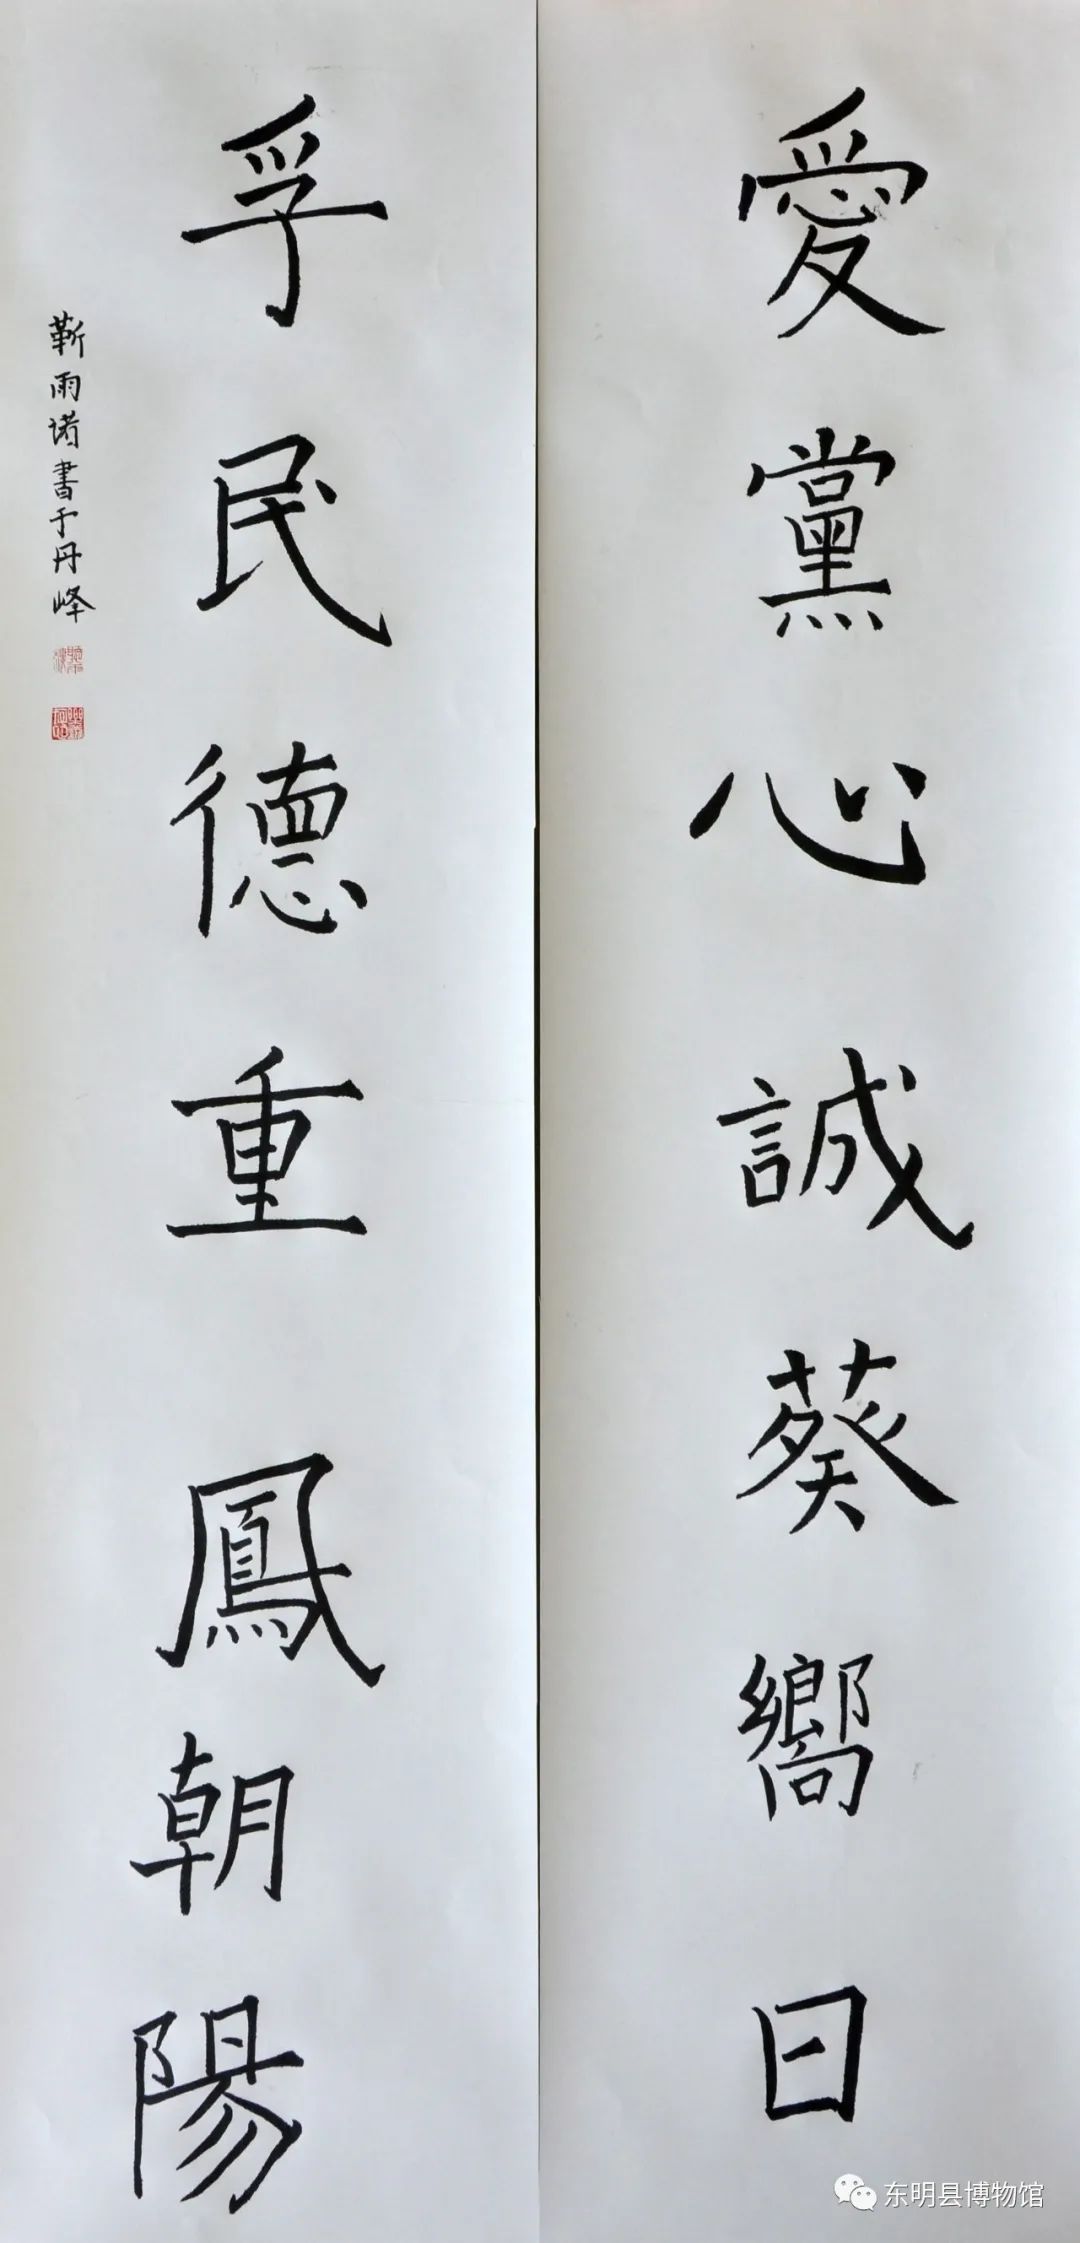 愛黨心誠葵嚮日
孚民德重鳳朝陽
靳雨諸書于丹峰
东明县博物馆